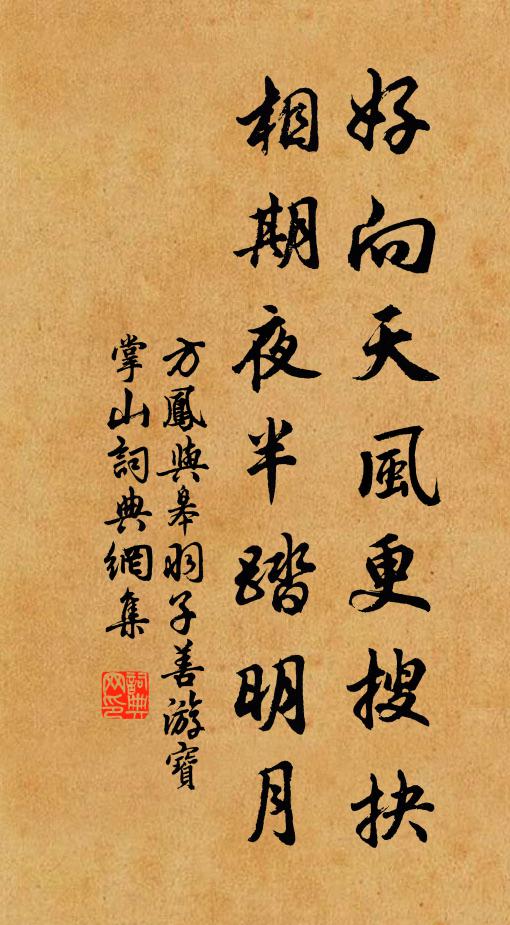 好向天風更搜抉
相期夜半踏明月
方鳳與皋羽子善游寶
掌山詞典網集
詞典網印